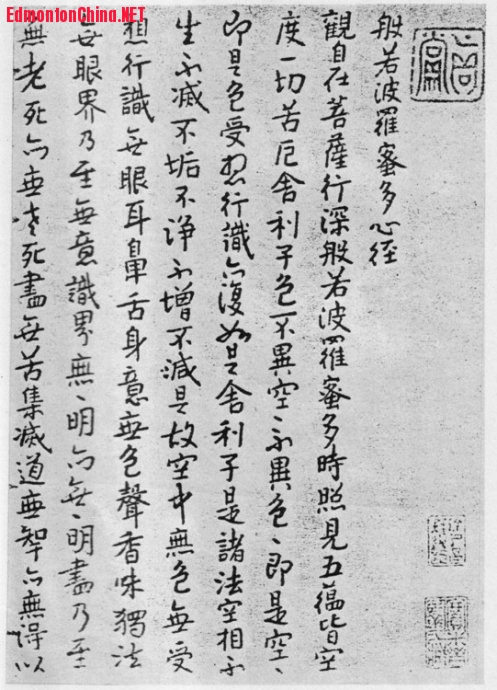 EdmontonChina.NET
般若波羅蜜多心經
觀自在菩薩行深般若波羅蜜多時照見五蘊皆空
度一切苦厄舍利子色不異空、不異色、即是空、
即是色受想行識亦復如是舍利子是諸法空相不
生不滅不垢不淨不增不減是故空中無色無受
想行識無眼耳鼻舌身意無色聲香味獨法
無眼界乃至無意識界無、明亦無、明盡乃至
無老死亦無老死盡無苦集滅道無智亦無得以